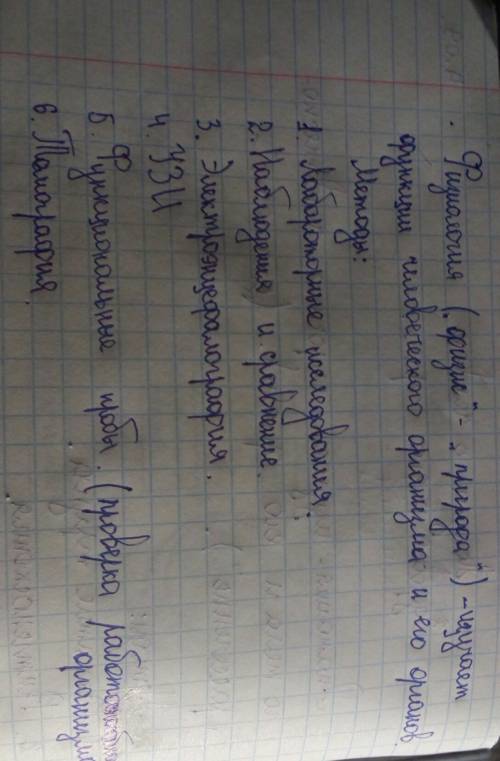 • Физиалогия ( „физис" - „природа") - изучает
функции человеческого организма и его органов.
Методы:
1. Лабараторные иследования.
2. Наблюдения и сравнение.
3. Электроэнцефалография.
4. УЗИ
5. Функциональные пробы. (проверка
6. Тамография.